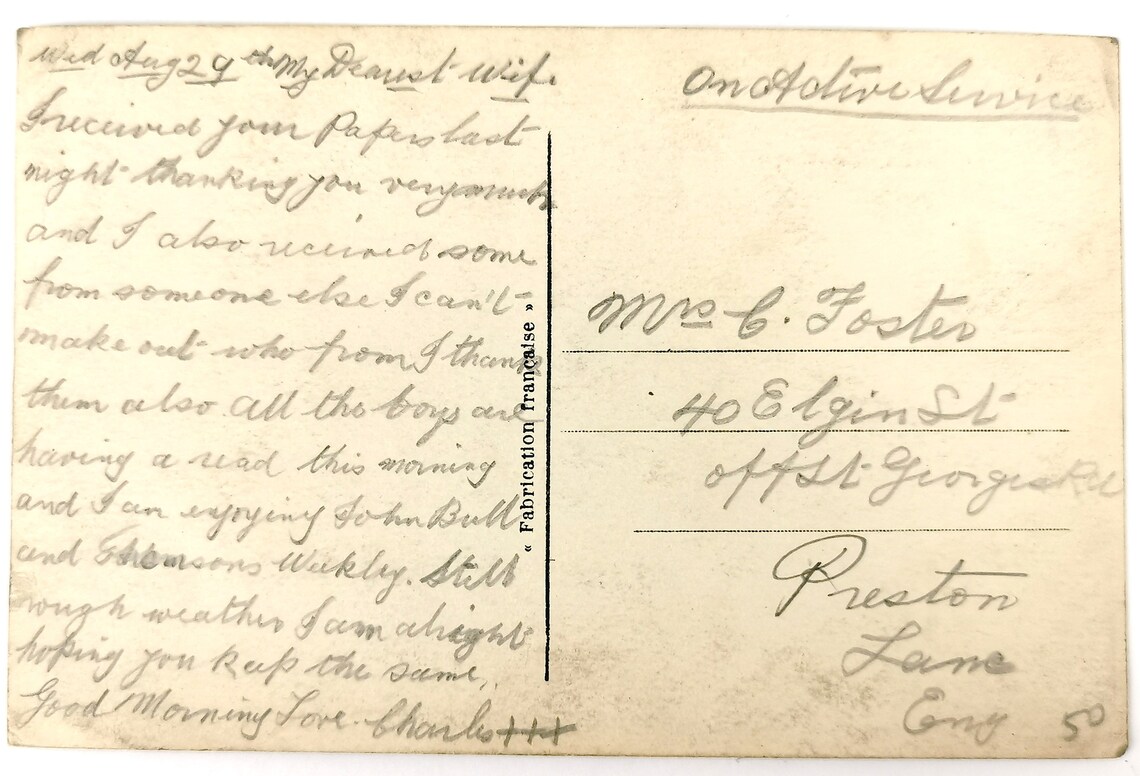 Wed Aug 29th My Dearest Wife
I received your Papers last
night thanking you very much
and I also received some
from someone else I can't
make out who from I thank
them also. All the boys are
having a read this morning
and I am enjoying John Bull
and Thomsons Weekly. Still
rough weather I am alright
hoping you keep the same,
Good Morning Love. Charles +++
« Fabrication française »
On Active Service
Mrs C. Foster
40 Elgin St
off St Georges Rd
Preston
Lanc
Eng
50